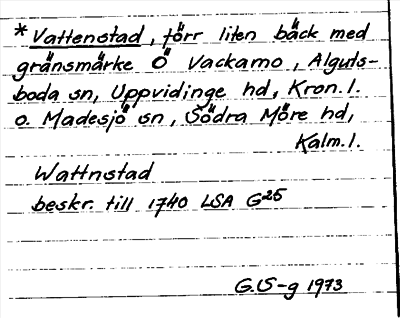 * Vattenstad, förr liten bäck med
gränsmärke Ö Vackamo, Alguts-
boda sn, Uppvidinge hd, Kron. l.
o. Madesjö sn, Södra Möre hd,
Kalm. l.
Wattnstad
beskr. till 1740 LSA G25
G.U-g 1973